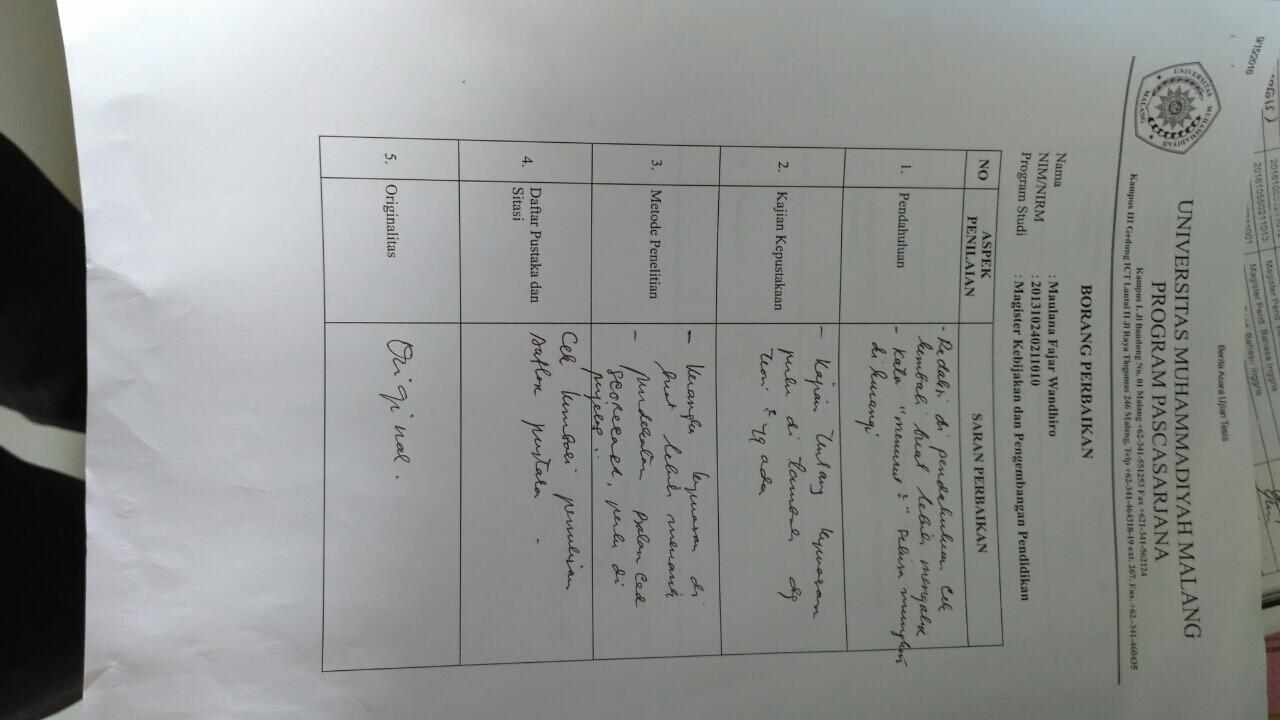 9/15/2016
Berita Acara Ujian Tesis
201610550211013 Magister Pend. Bahasa Inggris
UNIVERSITAS MUHAMMADIYAH MALANG
PROGRAM PASCASARJANA
Kampus I. Jl Bandung No. 01 Malang +62-341-551253 Fax +621-341-562124
Kampus III Gedung ICT Lantai II Jl Raya Tlogomas 246 Malang, Telp +62-341-464318-19 ext. 267. Fax. +62-341-460435
UNIVERSITAS MUHAMMADIYAH MALANG
BORANG PERBAIKAN
Nama : Maulana Fajar Wandhiro
NIM/NIRM : 201310240211010
Program Studi : Magister Kebijakan dan Pengembangan Pendidikan
NO ASPEK PENILAIAN SARAN PERBAIKAN
1. Pendahuluan
- Redaksi di pendahuluan cek
kembali buat lebih mengalir
- Kata "menurut2" sebisa mungkin
dikurangi
2. Kajian Kepustakaan
- Kajian tentang kepuasan
perlu di tambah dg
teori2 yg ada
3. Metode Penelitian
- Kerangka kepuasan di
buat lebih menarik
- pendekatan Balanced
scorecard, perlu di
4. Daftar Pustaka dan
Sitasi
Cek kembali penulisan
Daftar pustaka.
5. Originalitas
Original.